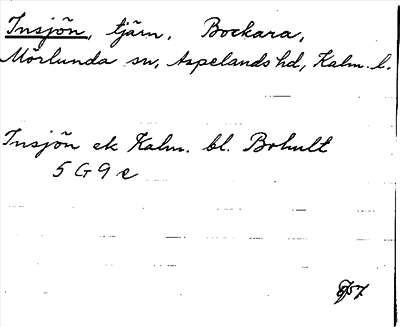 Insjön, tjärn, Bockara,
Mörlunda sn, Aspelands hd, Kalm. l.
Insjön ek Kalm. bl. Bohult
5 G 9 e